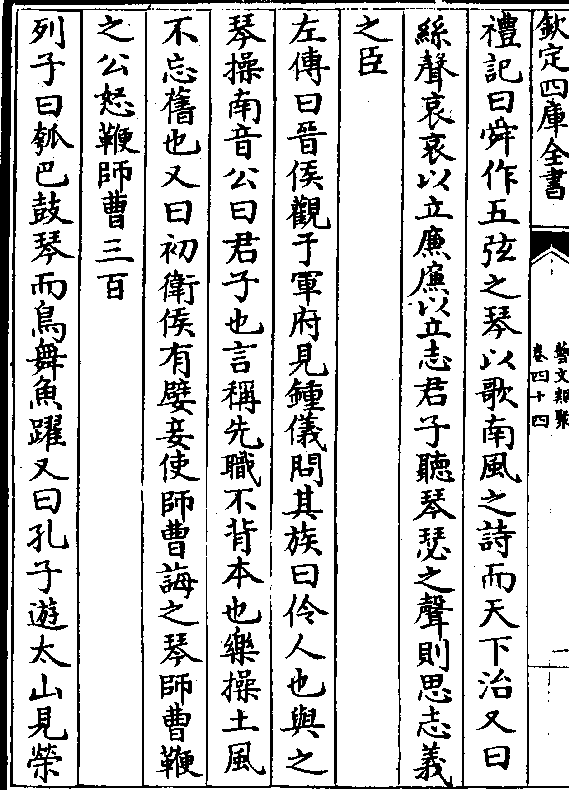 欽定四庫全書
藝文類聚
卷四十四
一
禮記曰舜作五弦之琴以歌南風之詩而天下治又曰
絲聲哀哀以立廉廉以立志君子聽琴瑟之聲則思志義
之臣
左傳曰晉侯觀于軍府見鍾儀問其族曰伶人也與之
琴操南音公曰君子也言稱先職不背本也樂操土風
不忘舊也又曰初衛侯有嬖妾使師曹誨之琴師曹鞭
之公怒鞭師曹三百
列子曰瓠巴鼓琴而鳥舞魚躍又曰孔子遊太山見榮